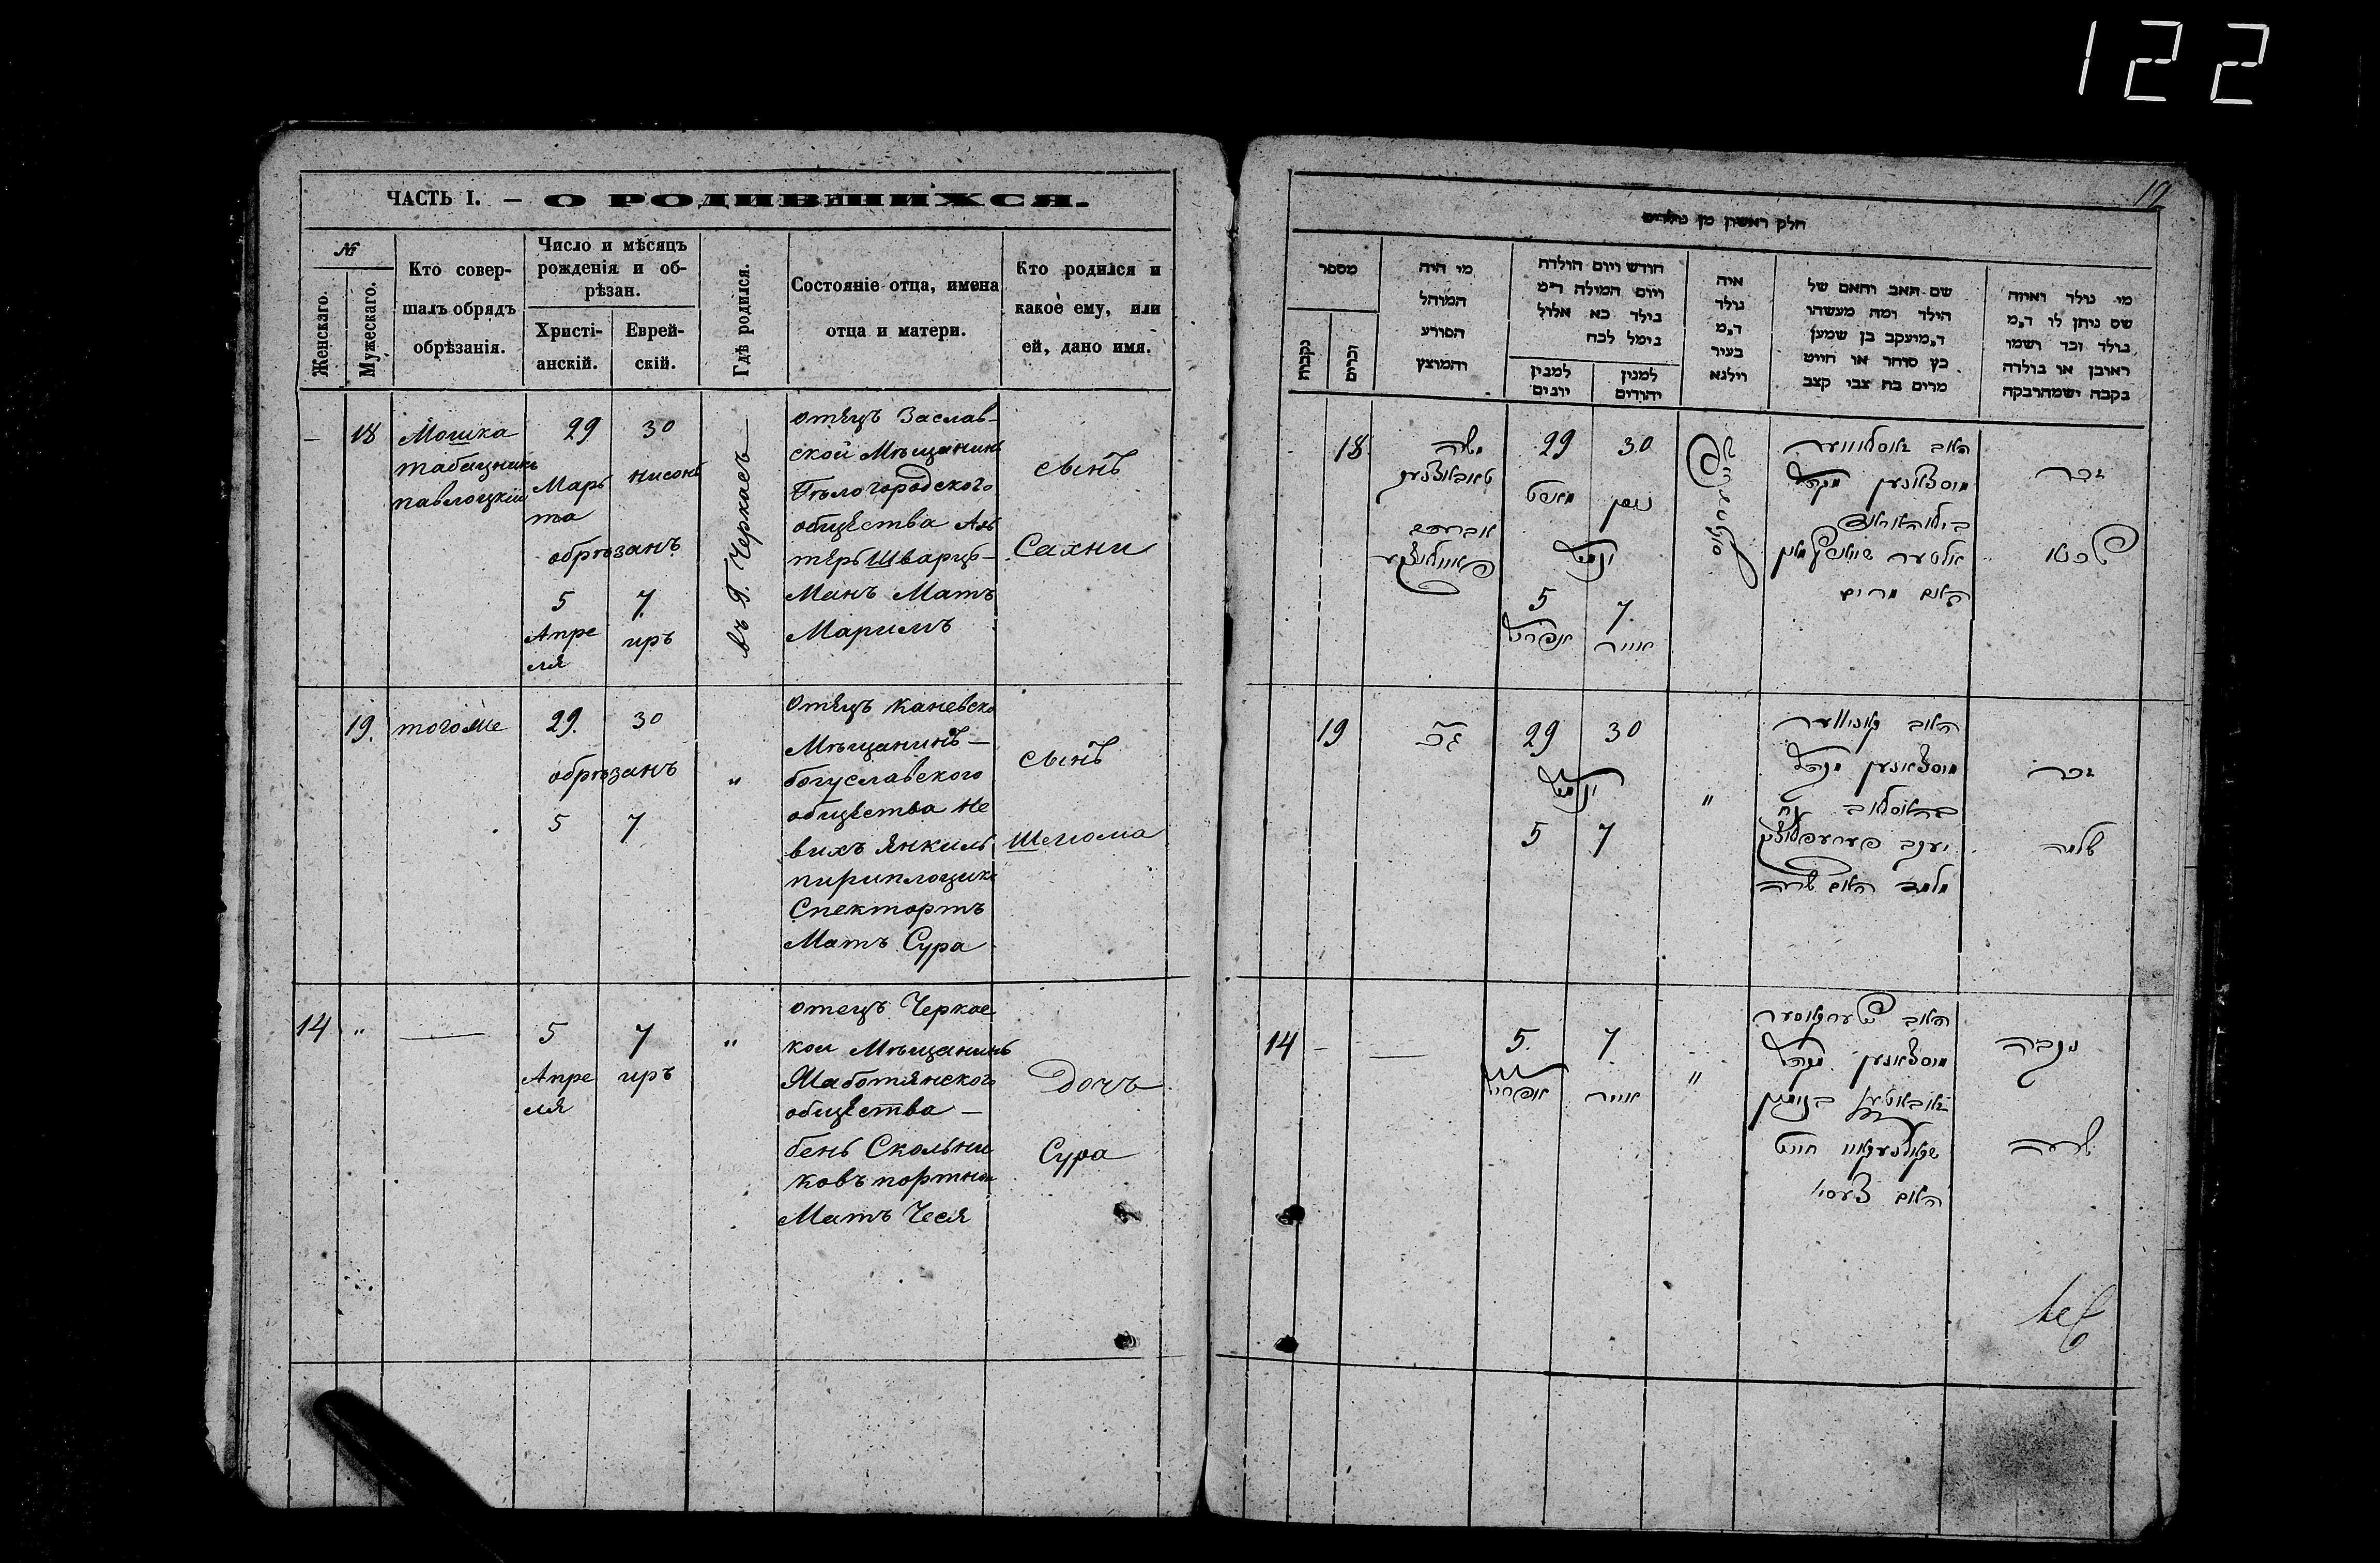 122
ЧАСТЬ I. — О РОДИВШИХСЯ.
№
Женскаго.
Мужескаго.
Кто совер-
шалъ обрядъ
обрѣзанія.
Число и мѣсяцъ
рожденія и об-
рѣзан.
Христі-
анскій.
Еврей-
скій.
Гдѣ родился.
Состояніе отца, имена
отца и матери.
Кто родился и
какое ему, или
ей, дано имя.
—
18
Мошка
табачникъ
павлоцкій
29
Мар
та
30
нисонъ
обрѣзанъ
5
Апре
ля
7
иръ
въ Г. Черкасъ
отецъ Заслав-
ской Мѣщанинъ
Бѣлогородского
общества Аль
терь Шварцъ-
Манъ Мать
Маримъ
сынъ
Сахни
19.
тогоже
29.
30
обрѣзанъ
5
7
"
Отецъ каневско
Мѣщанинъ —
богуславского
общества
вихъ Янкиль
Спекторъ
Мать Сура
сынъ
Шелома
14
"
—
5
Апре
ля
7
иръ
"
отецъ Черкас
кои Мѣщанинъ
Жаботянского
общества —
бень Скольни
ковъ портной
Мать Чеся
Дочъ
Сура
12
חלק ראשון מן נולדים
מספר
נקבות
זכרים
מי היה
המוהל
הפורע
והמוצץ
חודש ויום הולדת
ויום המילה ד״מ
נולד כא אלול
נימל לכח
למנין
יונים
למנין
יהודים
איה
נולד
ד״מ
בעיר
ווילנא
שם האב והאם של
הילד ומה מעשהו
ד״מ יעקב בן שמעון
כץ סוחר או חייט
מרים בת צבי קצב
מי נולד ואיזה
שם ניתן לו ד״מ
נולד זכר ושמו
ראובן או נולדה
נקבה ושמה רבקה
18
משה
אברהם
29
30
ניסן
נימול
5
אפריל
7
אייר
האב
אלטער שווארצמאן
האם מרים
זכר
שכנא
19
29
30
נימול
5
7
"
האב קאניווער
יעקב
מלמד האם שרה
זכר
שלמה
14
—
—
5
אפריל
7
אייר
"
האב טשערקאסער
חייט
האם
נקבה
שרה